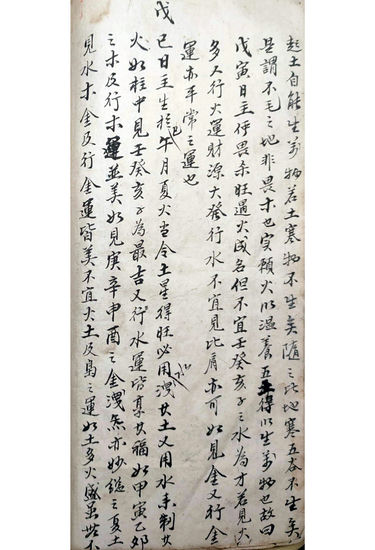 起土自能生万物若土寒物不生矣随之此地寒五谷不生矣
是謂不毛之地非畏木也实賴火以温養五土得以生万物也故曰
戊寅日主怀畏杀旺遇火成名但不宜壬癸亥子之水為才若見火
多人行火運財源大發行水不宜見比肩亦可如見金又行金
運亦平常之運也
戊
己日主生於巳午月夏火当令土星得旺必用水洩其土又用水未制其
火如柱中見壬癸亥子為最吉又行水運皆享其福如甲寅乙卯
之木及行木運並美如見庚辛申酉之金洩炁亦妙総之夏土
見水木金及行金運皆美不宜火土及鳥之運如土多火盛虽無不